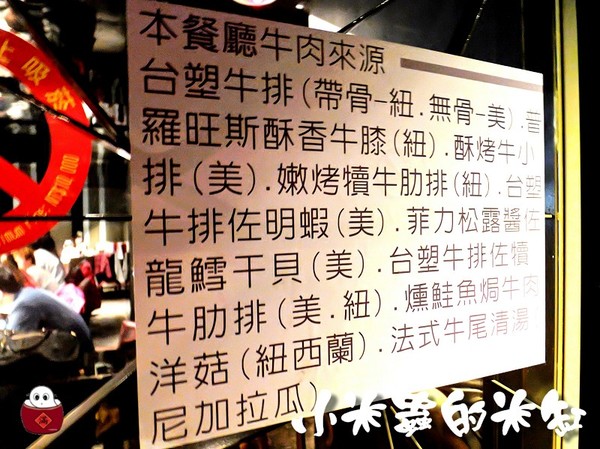 本餐廳牛肉來源
台塑牛排(帶骨-紐.無骨-美).普
羅旺斯酥香牛膝(紐).酥烤牛小
排(美).嫩烤犢牛肋排(紐).台塑
牛排佐明蝦(美).菲力松露醬佐
龍鱈干貝(美).台塑牛排佐犢
牛肋排(美.紐).燻鮭魚焗牛肉
洋菇(紐西蘭).法式牛尾清湯(
尼加拉瓜)
小米蟲的米缸